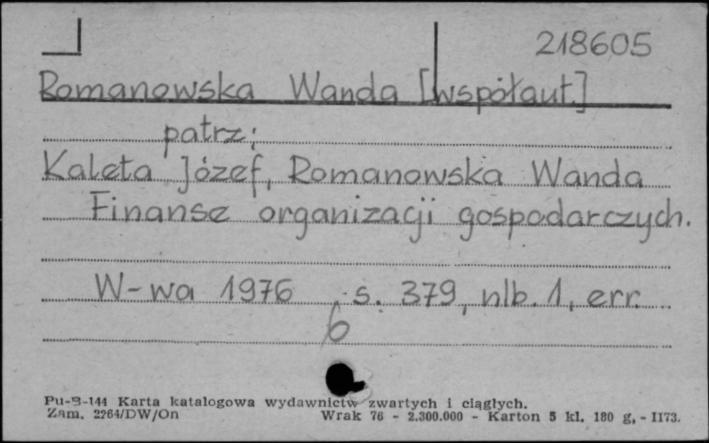 218605
Romanowska Wanda [współaut.]
patrz:
Kaleta Józef, Romanowska Wanda
Finanse organizacji gospodarczych.
W-wa 1976 s. 379, nlb. 1, err.
6
Pu-B-144 Karta katalogowa wydawnictw zwartych i ciągłych.
Zam. 2264/DW/On Wrak 76 - 2.300.000 - Karton 5 kl. 180 g. - II73.